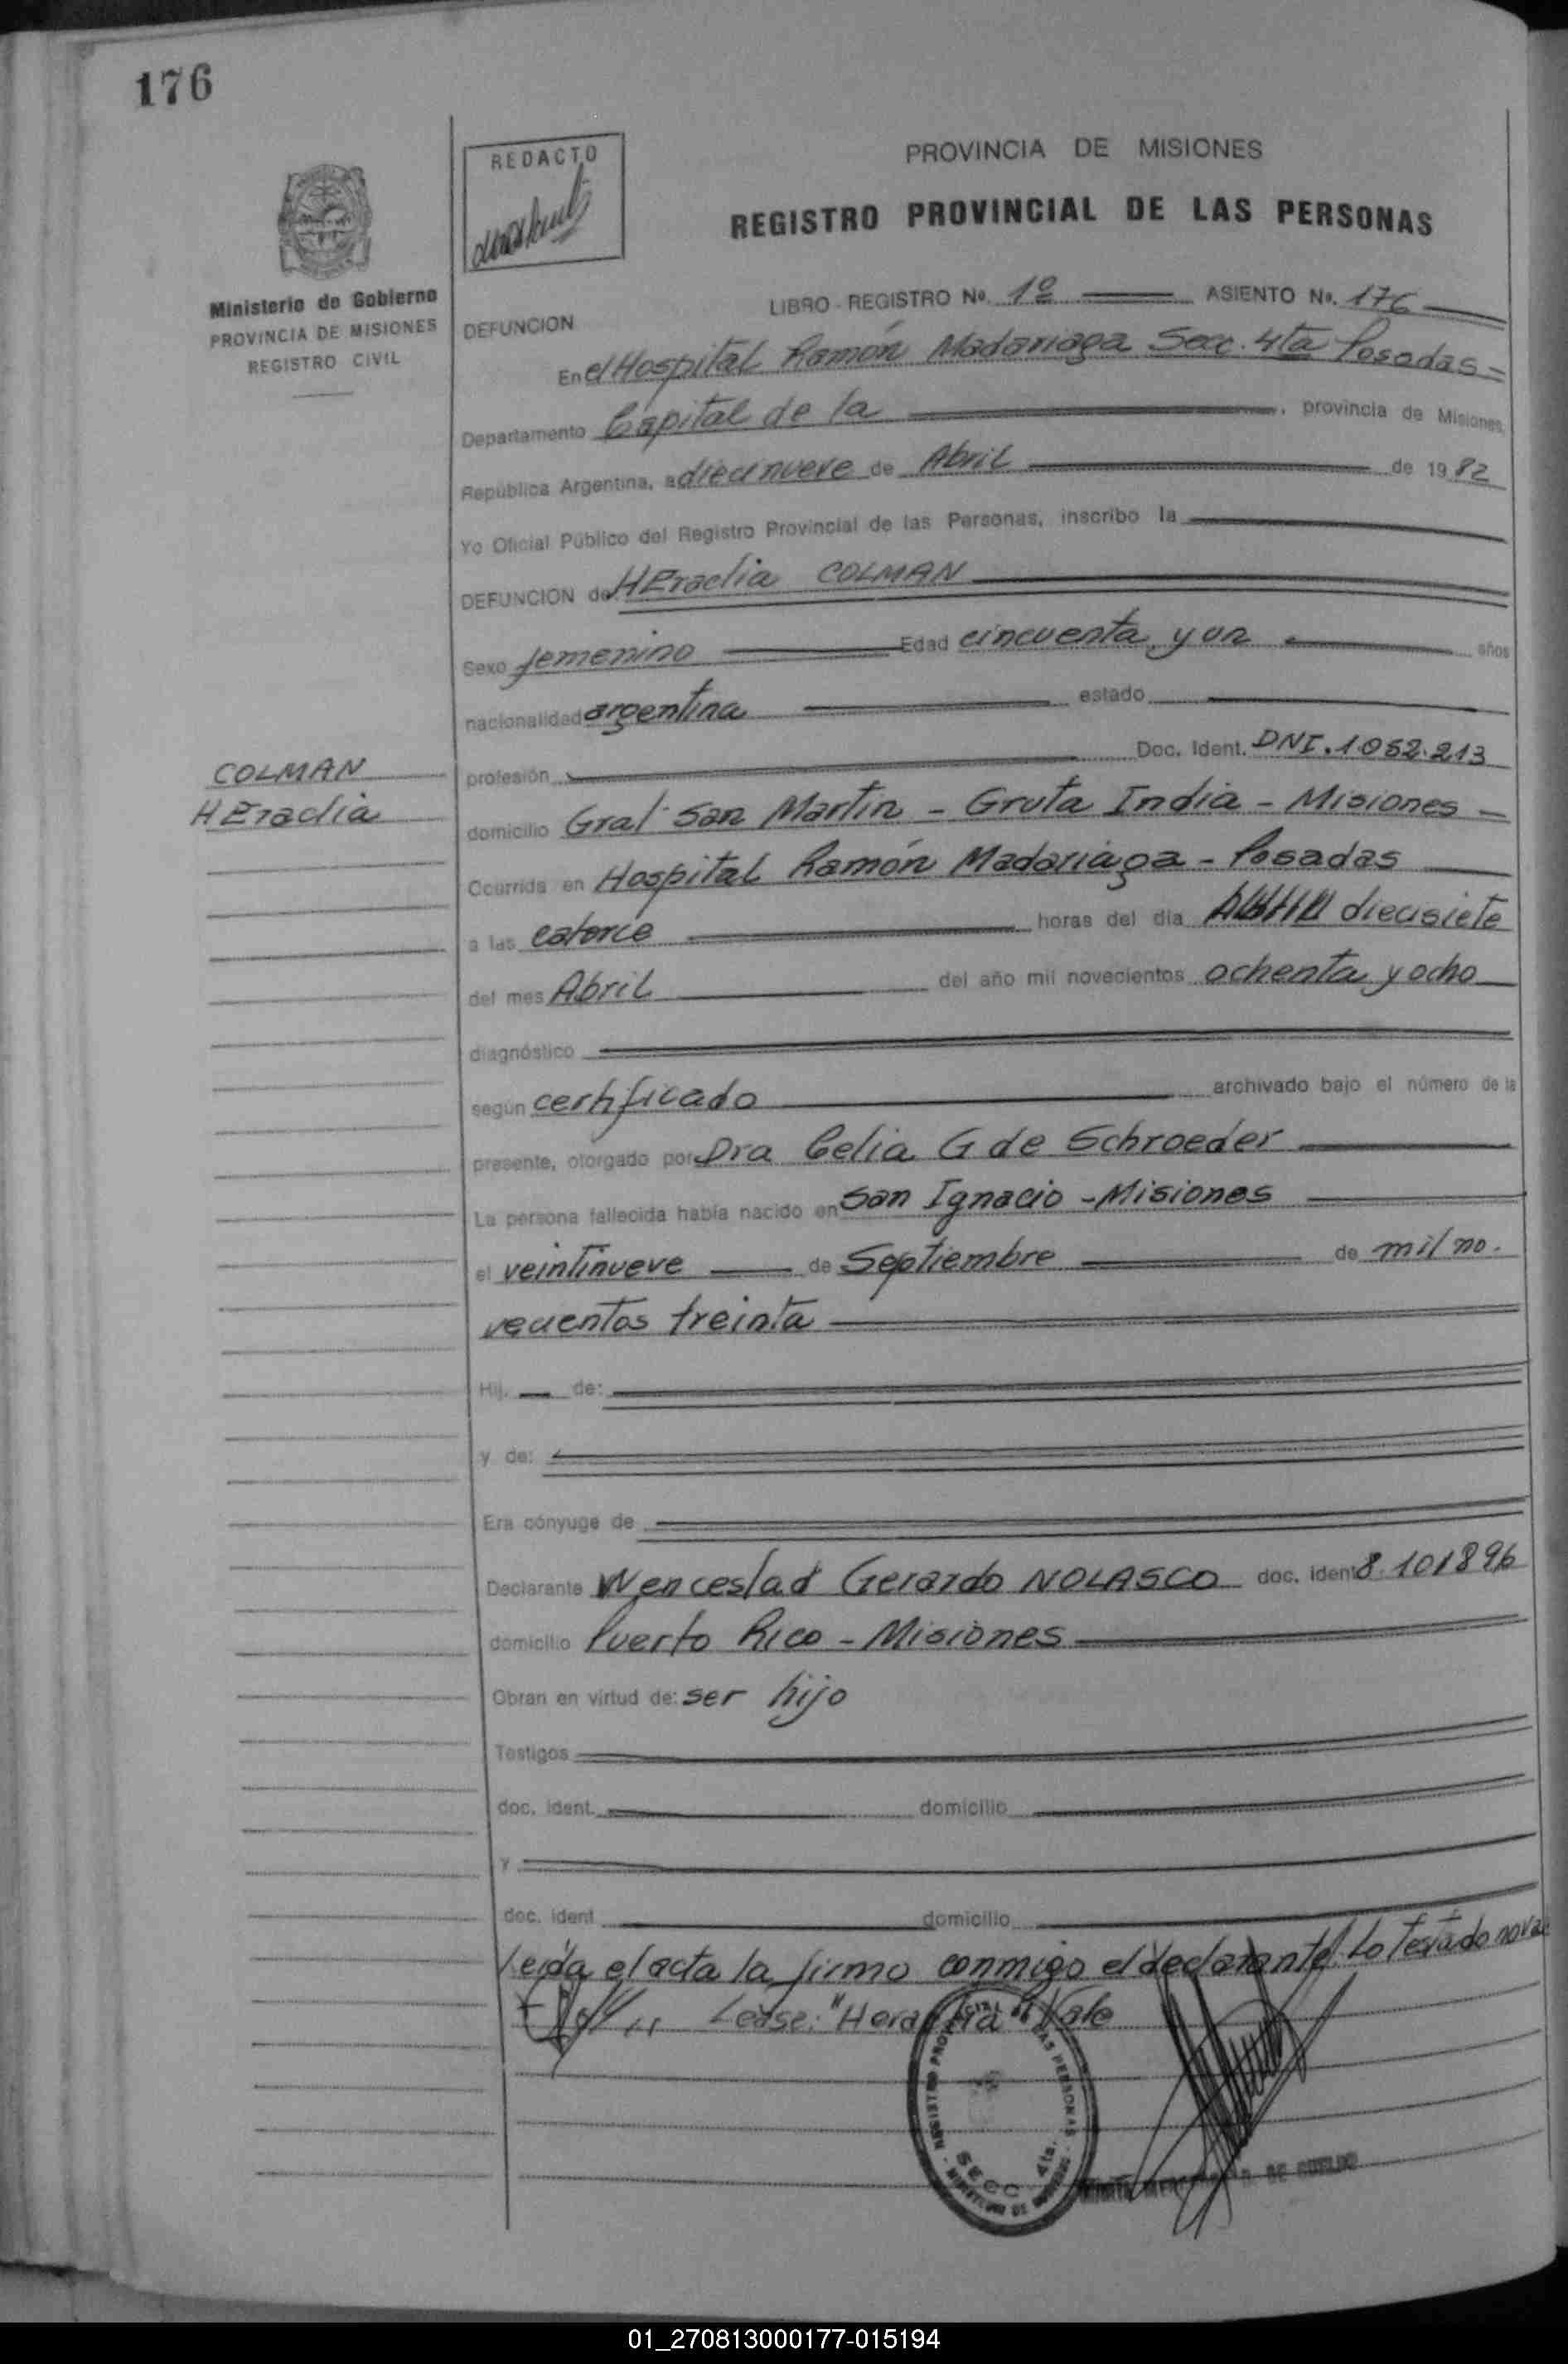 176
REDACTO
PROVINCIA DE MISIONES
REGISTRO PROVINCIAL DE LAS PERSONAS
Ministerio de Gobierno
PROVINCIA DE MISIONES
REGISTRO CIVIL
LIBRO - REGISTRO No. 1º ASIENTO No. 176
DEFUNCION
En el Hospital Ramón Madariaga Secc. 4ta Posadas =
Departamento Capital de la , provincia de Misiones,
República Argentina, a diecinueve de Abril de 19 82
Yo Oficial Público del Registro Provincial de las Personas, inscribo la
DEFUNCION de HEraclia COLMAN
Sexo femenino Edad cincuenta y un años
nacionalidad argentina estado
COLMAN
HEraclia
profesión Doc. Ident. DNI. 1.052.213
domicilio Gral San Martín - Gruta India - Misiones -
Ocurrida en Hospital Ramón Madariaga - Posadas
a las catorce horas del día diecisiete
del mes Abril del año mil novecientos ochenta y ocho
diagnóstico
según certificado archivado bajo el número de la
presente, otorgado por Dra Celia G de Schroeder
La persona fallecida había nacido en San Ignacio - Misiones
el veintinueve de Septiembre de mil no.
vecientos treinta
Hij. de:
y de:
Era cónyuge de
Declarante Wenceslad Gerardo NOLASCO doc. ident 8.101896
domicilio Puerto Rico - Misiones
Obran en virtud de: ser hijo
Testigos
doc. ident. domicilio
y
doc. ident domicilio
Leída el acta la firmo conmigo el declarante. Lo Testado no vale
Léase: "Heraclia" Vale
REGISTRO PROVINCIAL DE LAS PERSONAS
SECC 4ta.
DE
01_270813000177-015194